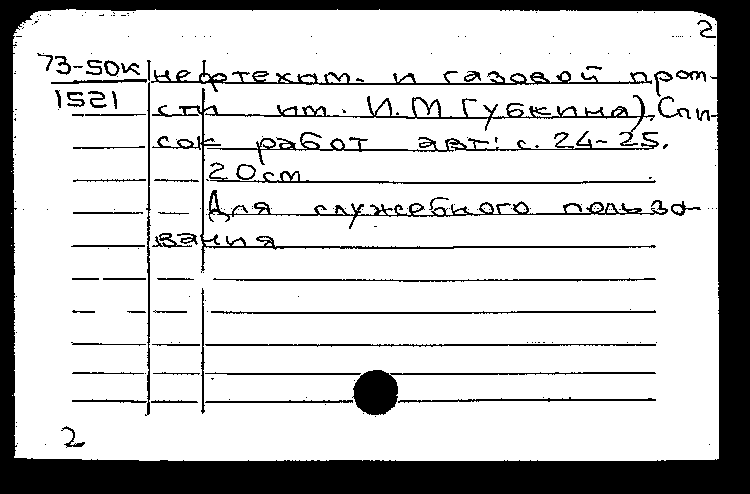 2
73-50к нефтехим. и газовой пром-
1521 сти им. И.М.Губкина). Спи-
сок работ авт: с. 24-25.
20см.
Для служебного пользо-
вания
2